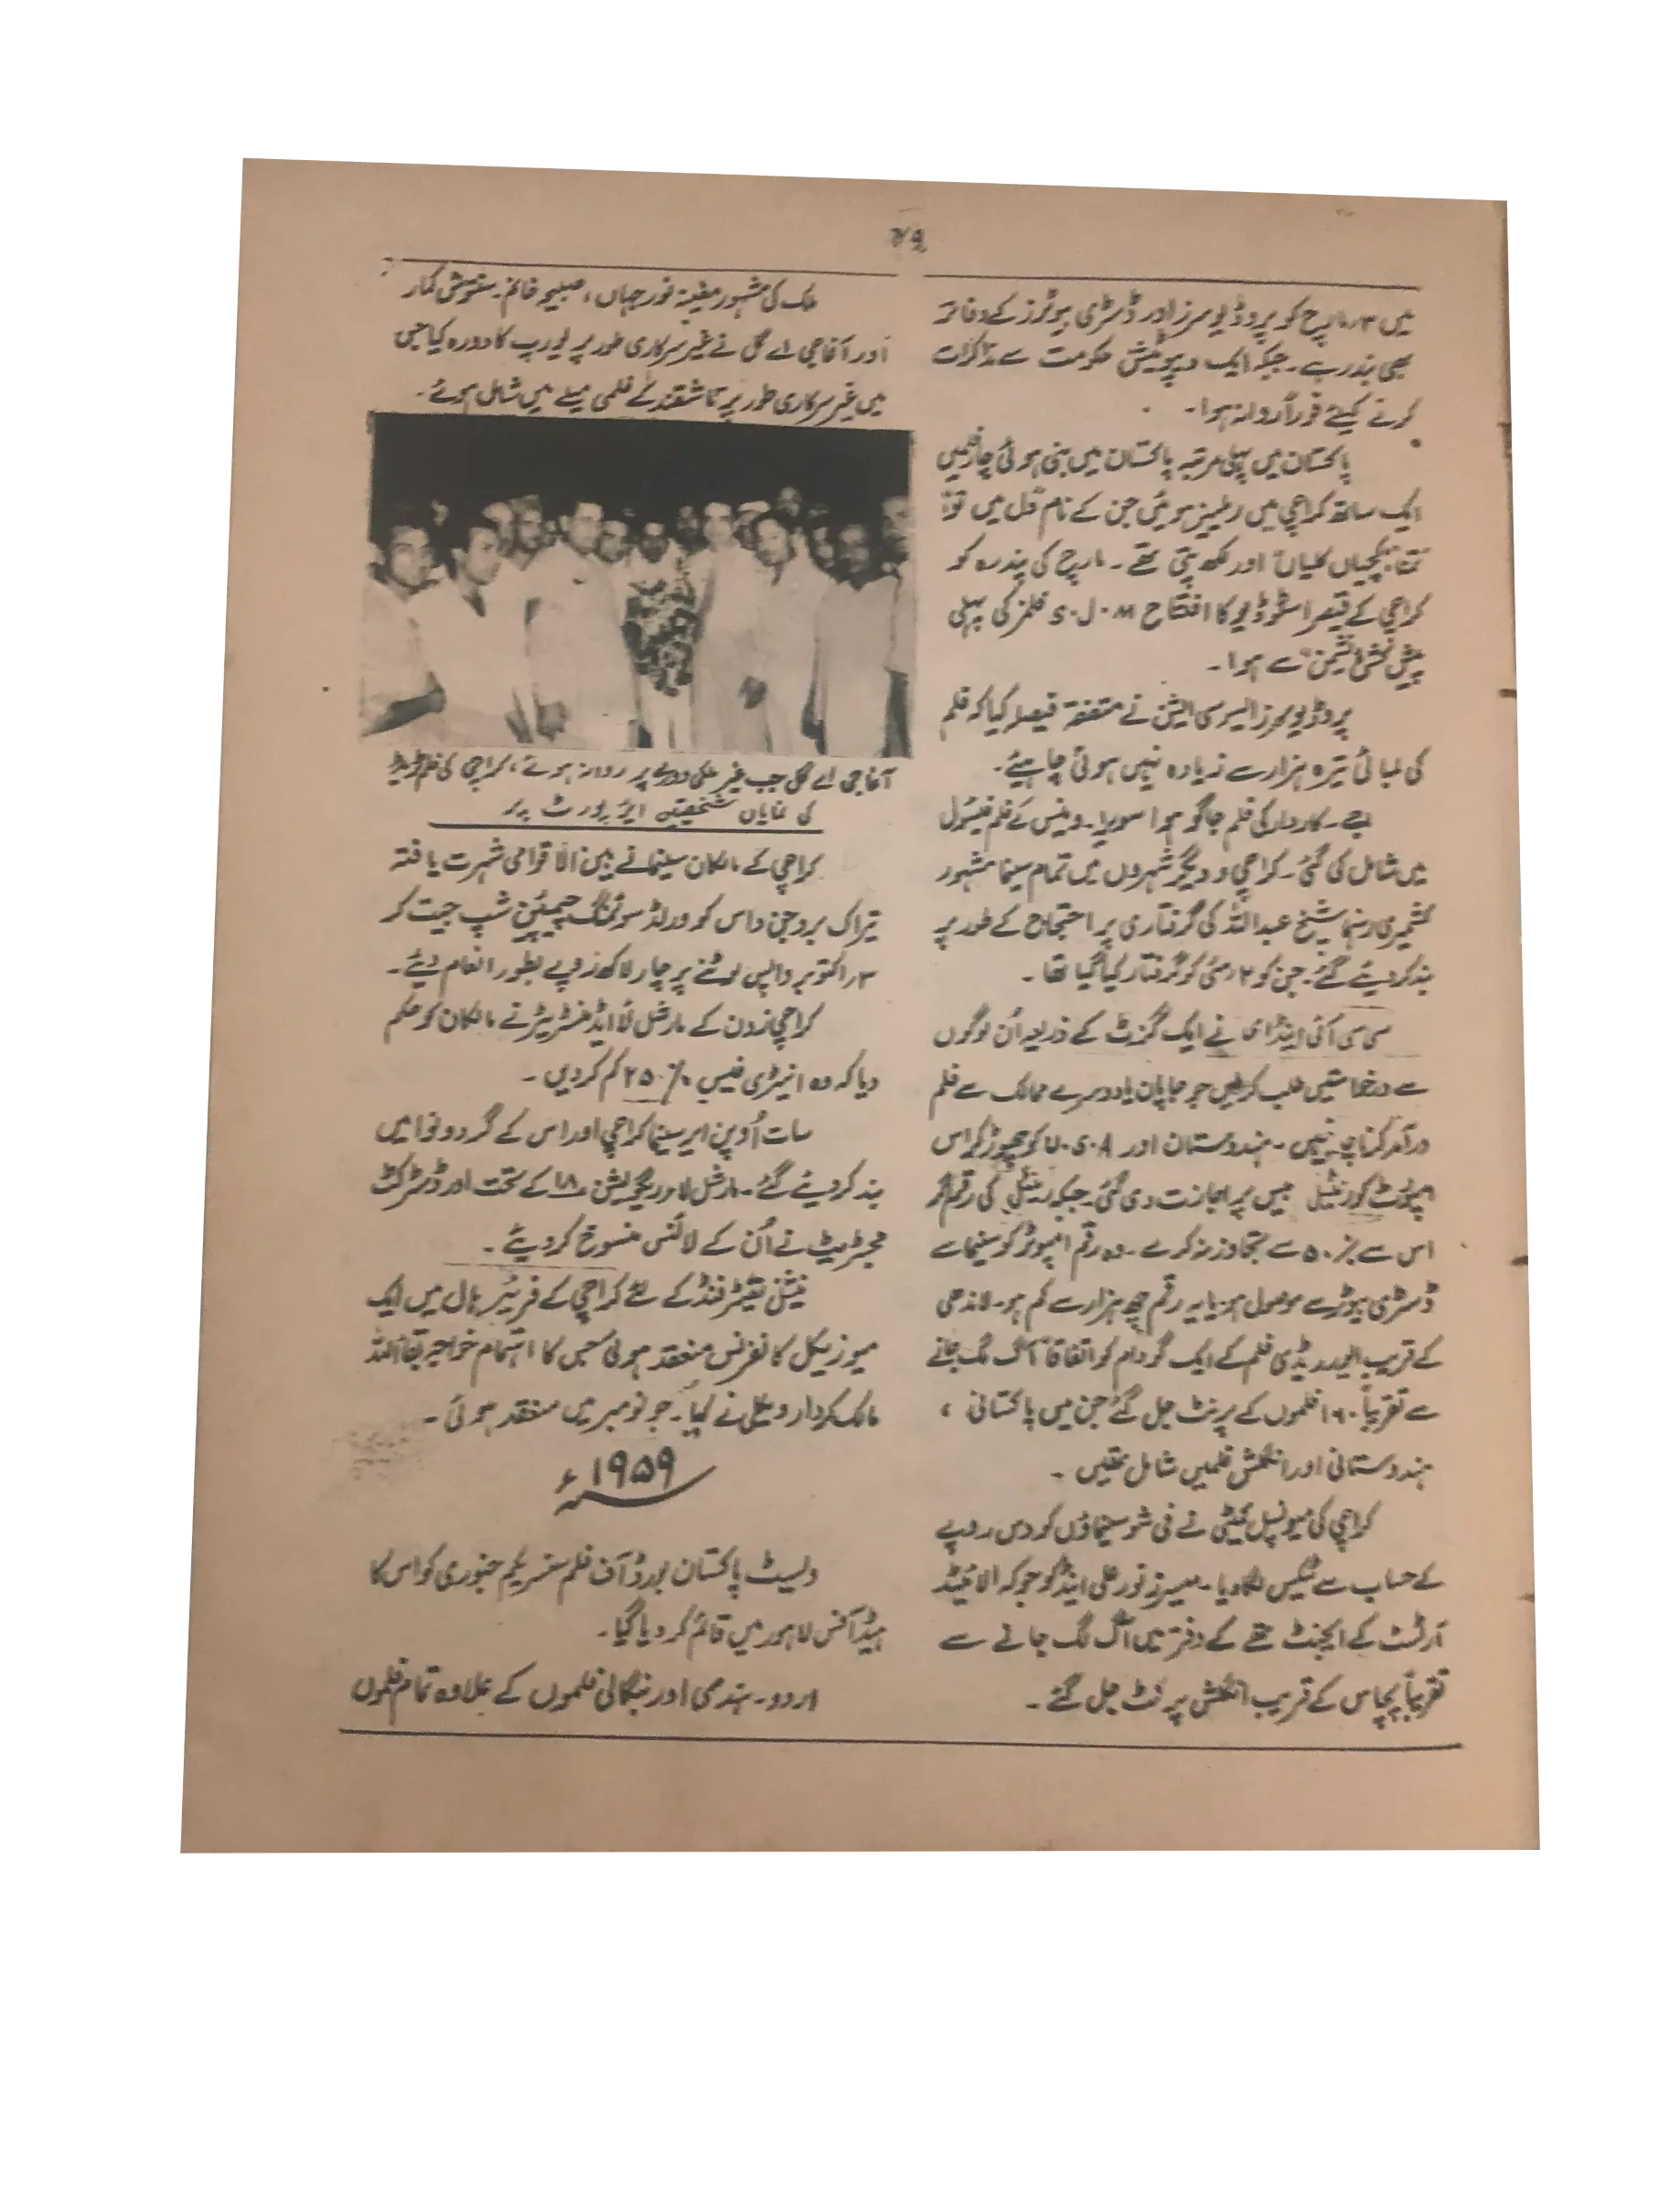 ۷۹
میں ۳ مارچ کو پروڈیوسرز اور ڈسٹری بیوٹرز کے دفاتر
بھی بند رہے۔ جبکہ ایک ڈیپوٹیشن حکومت سے مذاکرات
کرنے کیلئے فوراً روانہ ہوا۔
پاکستان میں پہلی مرتبہ پاکستان میں بنی ہوئی چار فلمیں
ایک ساتھ کراچی میں ریلیز ہوئیں جن کے نام دل میں تو،
تمنا، کچیاں کلیاں اور لکھ پتی تھے۔ مارچ کی پندرہ کو
کراچی کے قیصر اسٹوڈیو کا افتتاح فلمز کی پہلی
پیش کش سے ہوا۔
پروڈیوسرز ایسوسی ایشن نے متفقہ فیصلہ کیا کہ فلم
کی لمبائی تیرہ ہزار سے زیادہ نہیں ہونی چاہیئے۔
اجے۔ کاردار کی فلم جاگو ہوا سویرا۔ وینس کے فلم فیسٹول
میں شامل کی گئی۔ کراچی و دیگر شہروں میں تمام سینما مشہور
کشمیری رہنما شیخ عبداللہ کی گرفتاری پر احتجاج کے طور پر
بند کر دیئے گئے۔ جن کو ۲ مئی کو گرفتار کیا گیا تھا۔
سی سی آئی اینڈ ای نے ایک گزٹ کے ذریعہ اُن لوگوں
سے درخواستیں طلب کر لیں جو جاپان یا دوسرے ممالک سے فلم
درآمد کرنا چاہیں۔ ہندوستان اور U.S.A کو چھوڑ کر اس
امپورٹ کو رینٹل بیس پر اجازت دی گئی۔ جبکہ رینٹل کی رقم اگر
اس سے ۵۰٪ سے تجاوز نہ کرے۔ وہ رقم امپورٹر کو سینما سے
ڈسٹری بیوٹر سے موصول ہو یا یہ رقم چھ ہزار سے کم ہو۔ لانڈھی
کے قریب ایوریڈی فلم کے ایک گودام کو اتفاقاً آگ لگ جانے
سے تقریباً ۱۶۰ فلموں کے پرنٹ جل گئے جن میں پاکستانی،
ہندوستانی اور انگلش فلمیں شامل تھیں۔
کراچی کی میونسپل کمیٹی نے فی شو سینماؤں کو دس روپے
کے حساب سے ٹیکس لگا دیا۔ میسرز نور علی اینڈ کو جو کہ الائیڈ
آرٹسٹ کے ایجنٹ تھے کے دفتر میں آگ لگ جانے سے
تقریباً پچاس کے قریب انگلش پرنٹ جل گئے۔
ملک کی مشہور مغنیہ نور جہاں، صبیحہ خانم۔ سنتوش کمار
اور آغا جی اے گل نے غیر سرکاری طور پر یورپ کا دورہ کیا جس
میں غیر سرکاری طور پر تاشقند کے فلمی میلے میں شامل ہوئے۔
آغا جی اے گل جب غیر ملکی دورے پر روانہ ہوئے، کراچی کی فلم ٹریڈ
کی نمایاں شخصیتیں ایئر پورٹ پر
کراچی کے مالکان سینما نے بین الاقوامی شہرت یافتہ
تیراک بروجن داس کو ورلڈ سوئمنگ چیمپئین شپ جیت کر
۳ر اکتوبر واپس لوٹنے پر چار لاکھ روپے بطور انعام دیئے۔
کراچی زون کے مارشل لاء ایڈمنسٹریٹر نے مالکان کو حکم
دیا کہ وہ انٹری فیس ۲۵٪ کم کر دیں۔
سات اُوپن ایئر سینما کراچی اور اس کے گرد و نوا میں
بند کر دیئے گئے۔ مارشل لاء ریگولیشن ۱۸ کے تحت اور ڈسٹرکٹ
مجسٹریٹ نے اُن کے لائنس منسوخ کر دیئے۔
نیشنل تھیٹر فنڈ کے لئے کراچی کے فریئر ہال میں ایک
میوزیکل کانفرنس منعقد ہوئی جس کا اہتمام خواجہ بقاء اللہ
مالک کردار ویکلی نے کیا۔ جو نومبر میں منعقد ہوئی۔
۱۹۵۹ء
ویسٹ پاکستان بورڈ آف فلم سنسر یکم جنوری کو اس کا
ہیڈ آفس لاہور میں قائم کر دیا گیا۔
اردو۔ ہندی اور بنگالی فلموں کے علاوہ تمام فلموں